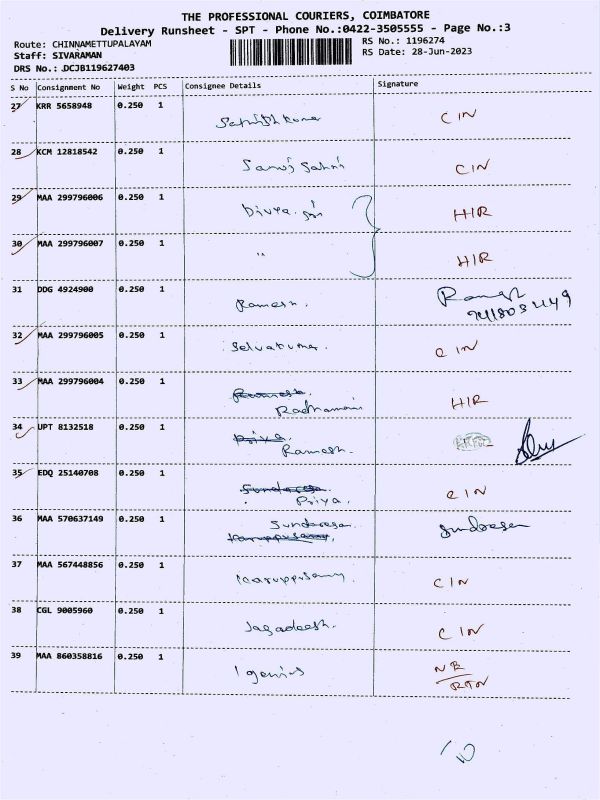 THE PROFESSIONAL COURIERS, COIMBATORE
Delivery Runsheet - SPT - Phone No.:0422-3505555 - Page No.:3
Route: CHINNAMETTUPALAYAM RS No.: 1196274
Staff: SIVARAMAN RS Date: 28-Jun-2023
DRS No.: .DCJB119627403
S No Consignment No Weight PCS Consignee Details Signature
27 KRR 5658948 0.250 1 CIN
28 KCM 12818542 0.250 1 CIN
29 MAA 299796006 0.250 1 Divya HIR
30 MAA 299796007 0.250 1 " HIR
31 DDG 4924900 0.250 1 Ramesh. Ramesh
32 MAA 299796005 0.250 1 Selvakumar. CIN
33 MAA 299796004 0.250 1 HIR
Radhamani
34 UPT 8132518 0.250 1 Priya.
Ramesh.
35 EDQ 25140708 0.250 1 Sundaresan CIN
Priya.
36 MAA 570637149 0.250 1 Sundaresan. Sundaresan
Karuppusamy.
37 MAA 567448856 0.250 1 Karuppusamy CIN
38 CGL 9005960 0.250 1 Jagadeesh. CIN
39 MAA 860358816 0.250 1 Igenius NR
RTN